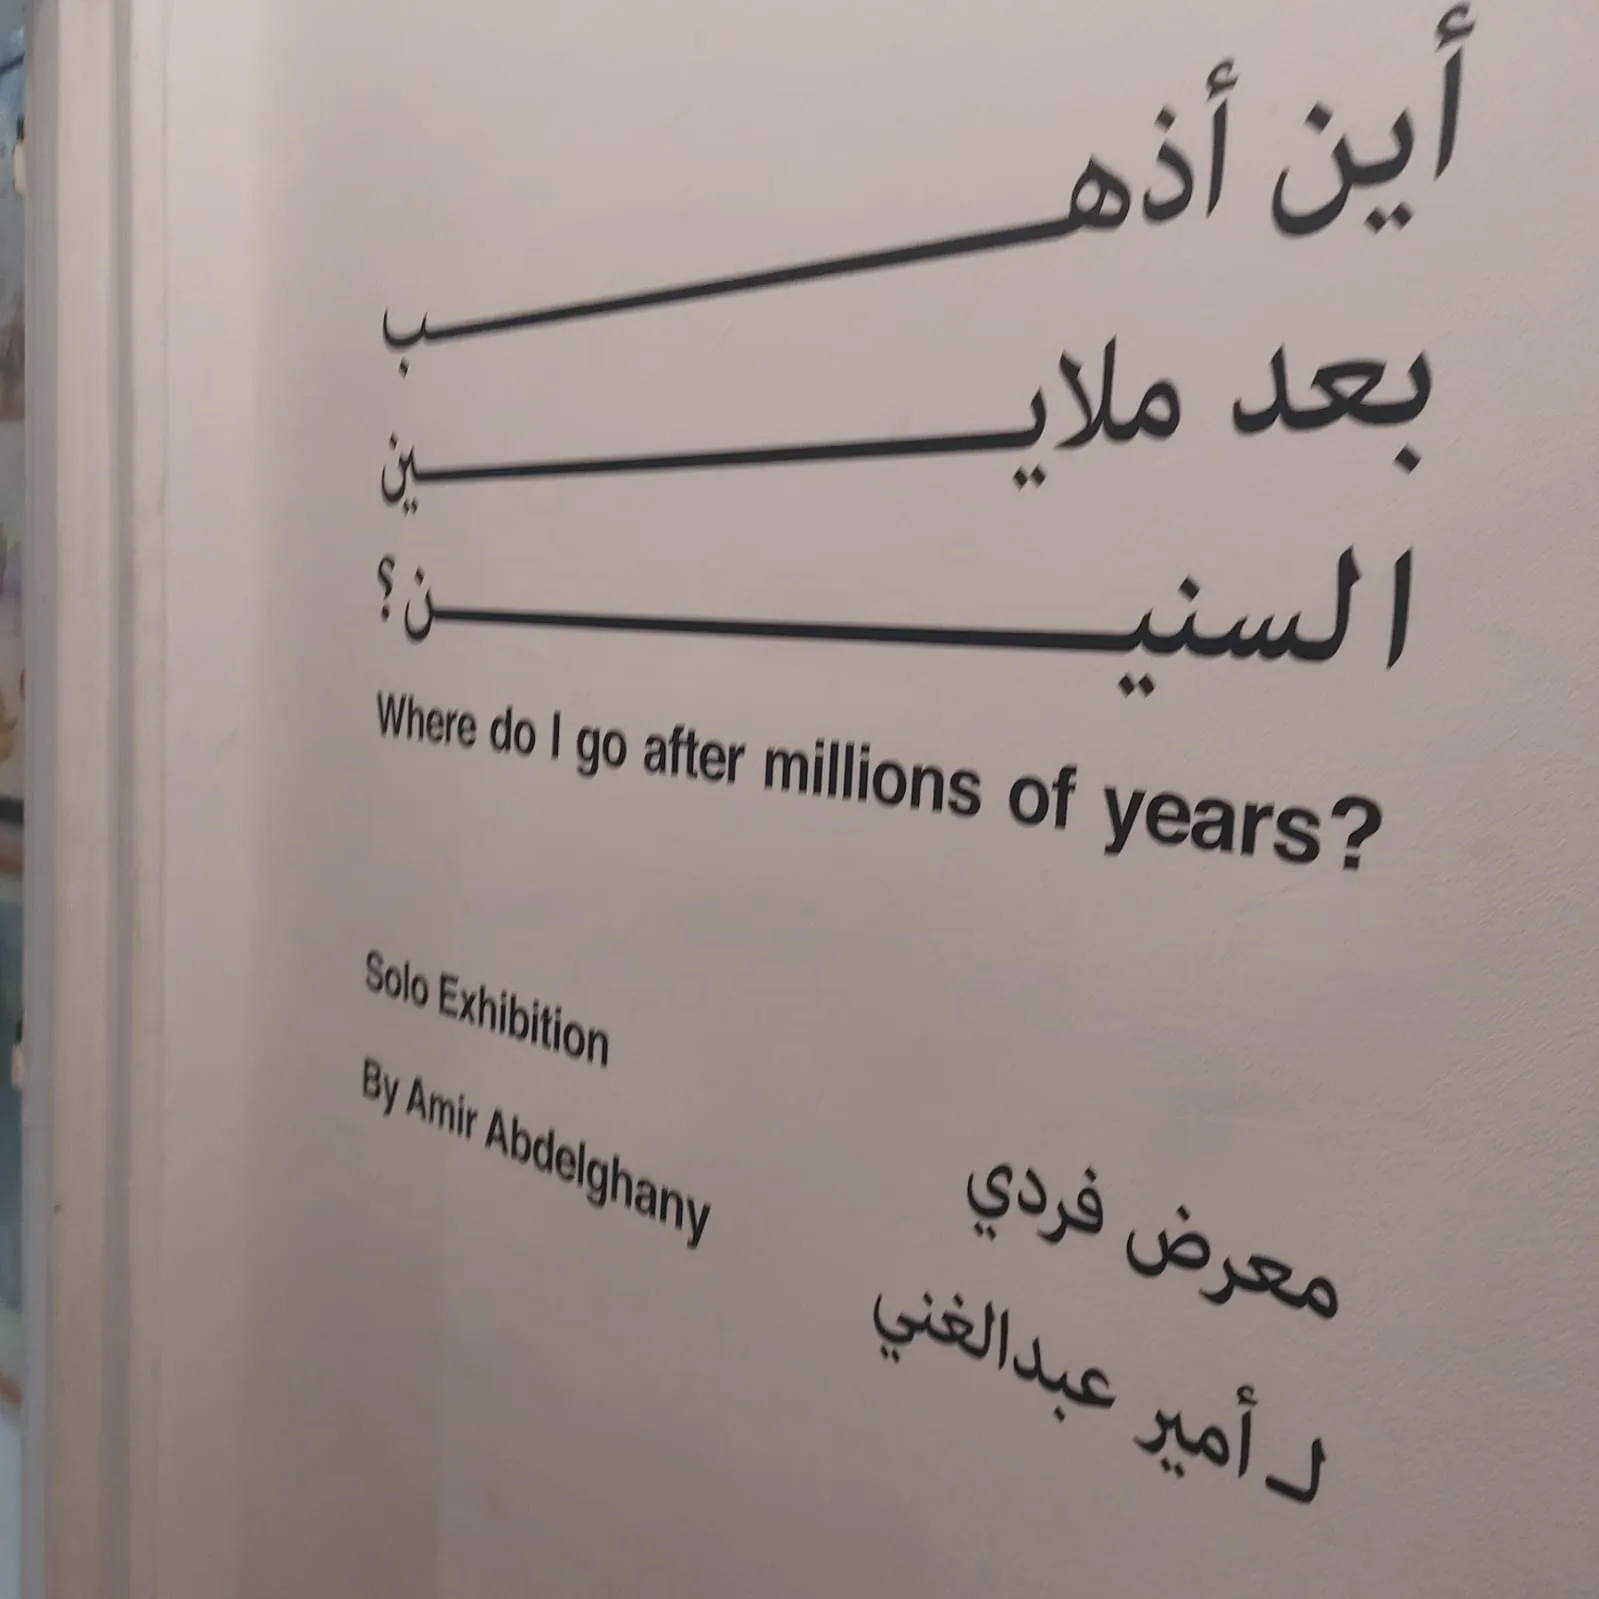 أين أذهب
بعد ملايين
السنين؟
Where do I go after millions of years?
Solo Exhibition
By Amir Abdelghany
معرض فردي
لـ أمير عبدالغني